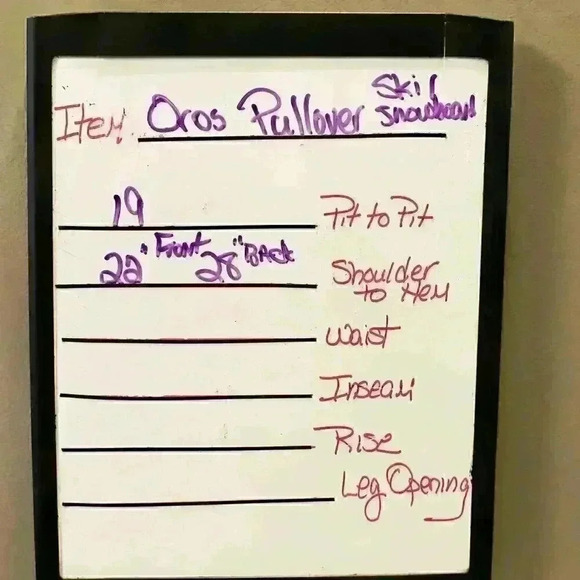 Item Oros Pullover Ski/ Snowboard
19 Pit to Pit
22" Front 28" Back Shoulder to Hem
Waist
Inseam
Rise
Leg Opening